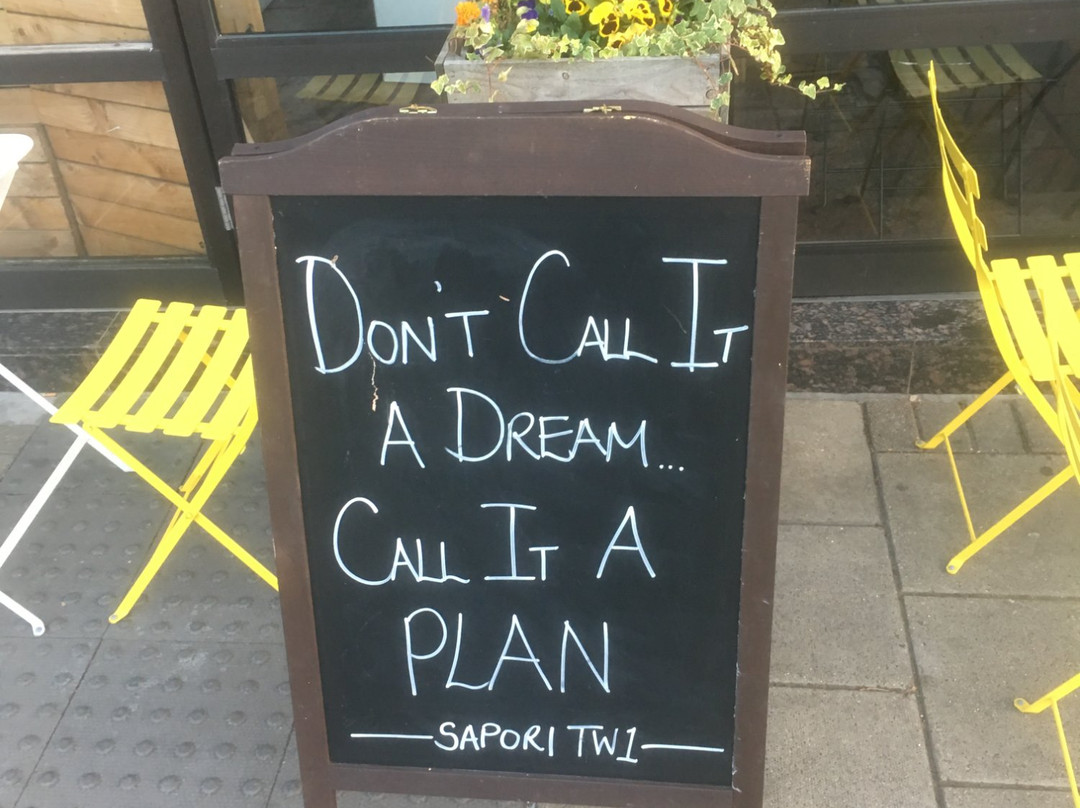 Don't Call It
A Dream...
Call It A
PLAN
SAPORI TW1